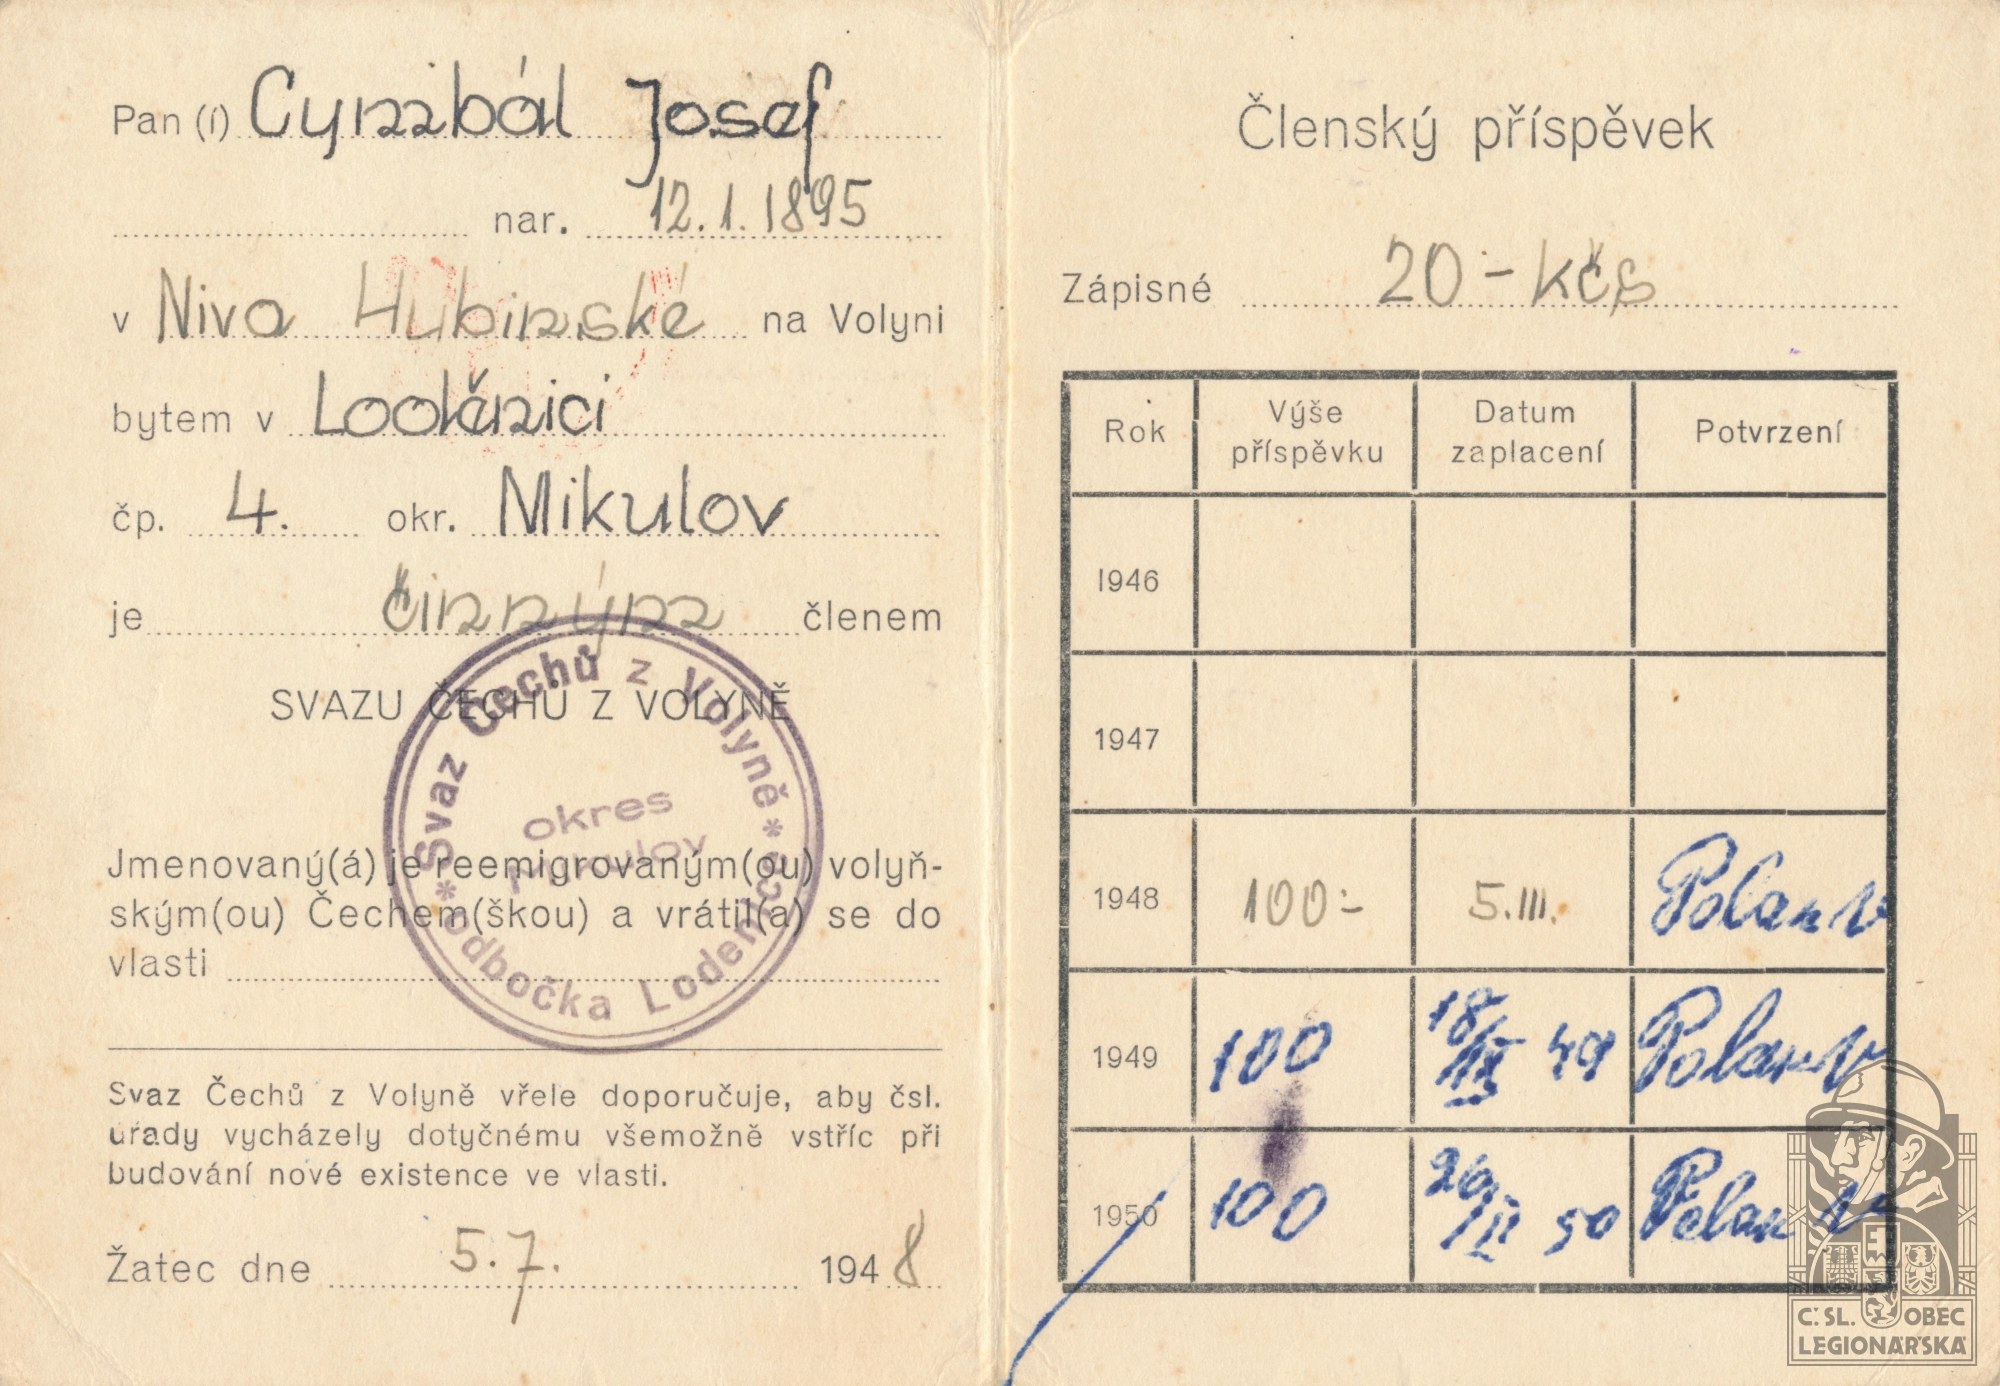 Pan (í) Cymbál Josef
nar. 12.1.1895
v Niva Hubinské na Volyni
bytem v Loděnici
čp. 4. okr. Mikulov
je činným členem
SVAZU ČECHŮ Z VOLYNĚ
Svaz Čechů z Volyně * odbočka Loděnice *
okres
Mikulov
Jmenovaný(á) je reemigrovaným(ou) volyň-
ským(ou) Čechem(škou) a vrátil(a) se do
vlasti
Svaz Čechů z Volyně vřele doporučuje, aby čsl.
úřady vycházely dotyčnému všemožně vstříc při
budování nové existence ve vlasti.
Žatec dne 5.7. 1948
Členský příspěvek
Zápisné 20 - kčs
Rok Výše příspěvku Datum zaplacení Potvrzení
1946
1947
1948 100:- 5.III.
1949 100 49
1950 100 26/II 50
Č.SL. OBEC
LEGIONÁŘSKÁ